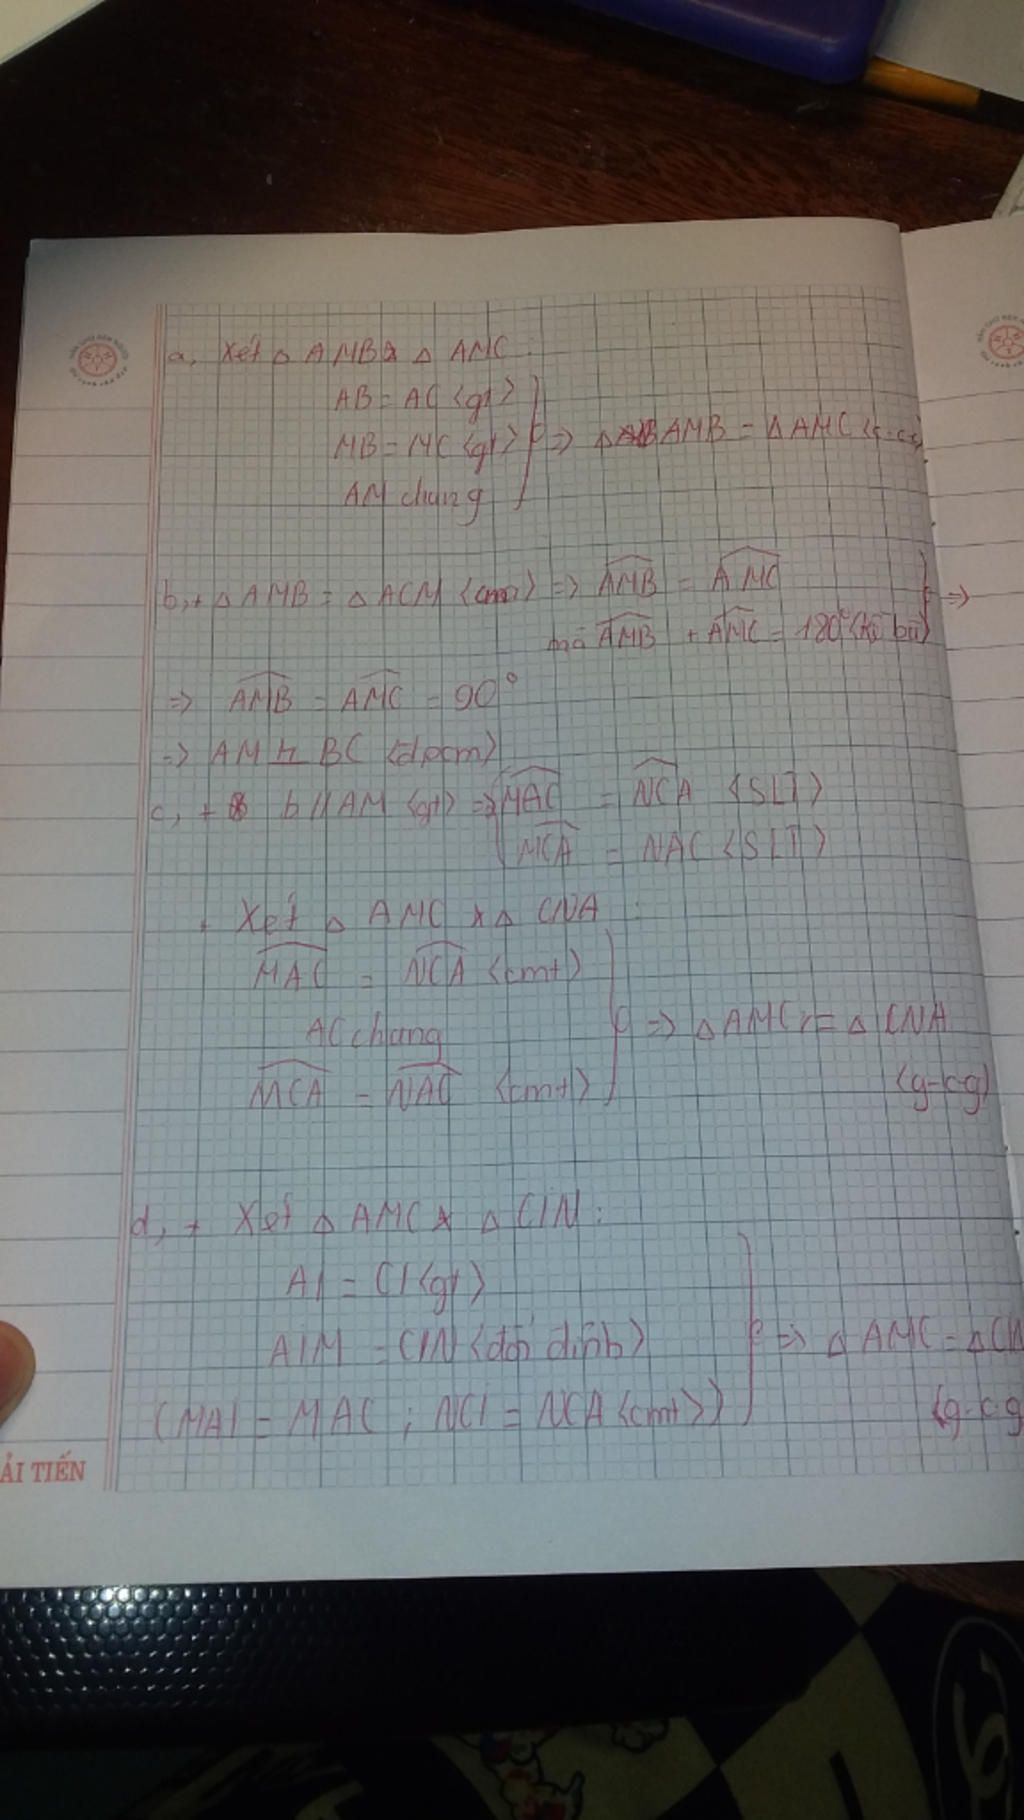 a, Xét △ AMB & △ AMC :
AB = AC <gt>
MB = MC <gt> => △ AMB = △ AMC <c-c-c>
AM chung
b, + △ AMB = △ ACM <cmt> => AMB = AMC
mà AMB + AMC = 180° <kề bù> =>
=> AMB = AMC = 90°
=> AM ⊥ BC <đpcm>
c, + b // AM <gt> => MAC = NCA <SLT>
MCA = NAC <SLT>
+ Xét △ AMC & △ CNA :
MAC = NCA <cmt>
AC chung => △ AMC = △ CNA
MCA = NAC <cmt> <g-c-g>
d, + Xét △ AMC & △ CIN :
AI = CI <gt>
AIM = CIN <đối đỉnh> => △ AMC = △ CIN
(MAI = MAC ; NCI = NCA <cmt>) <g-c-g
ẢI TIẾN